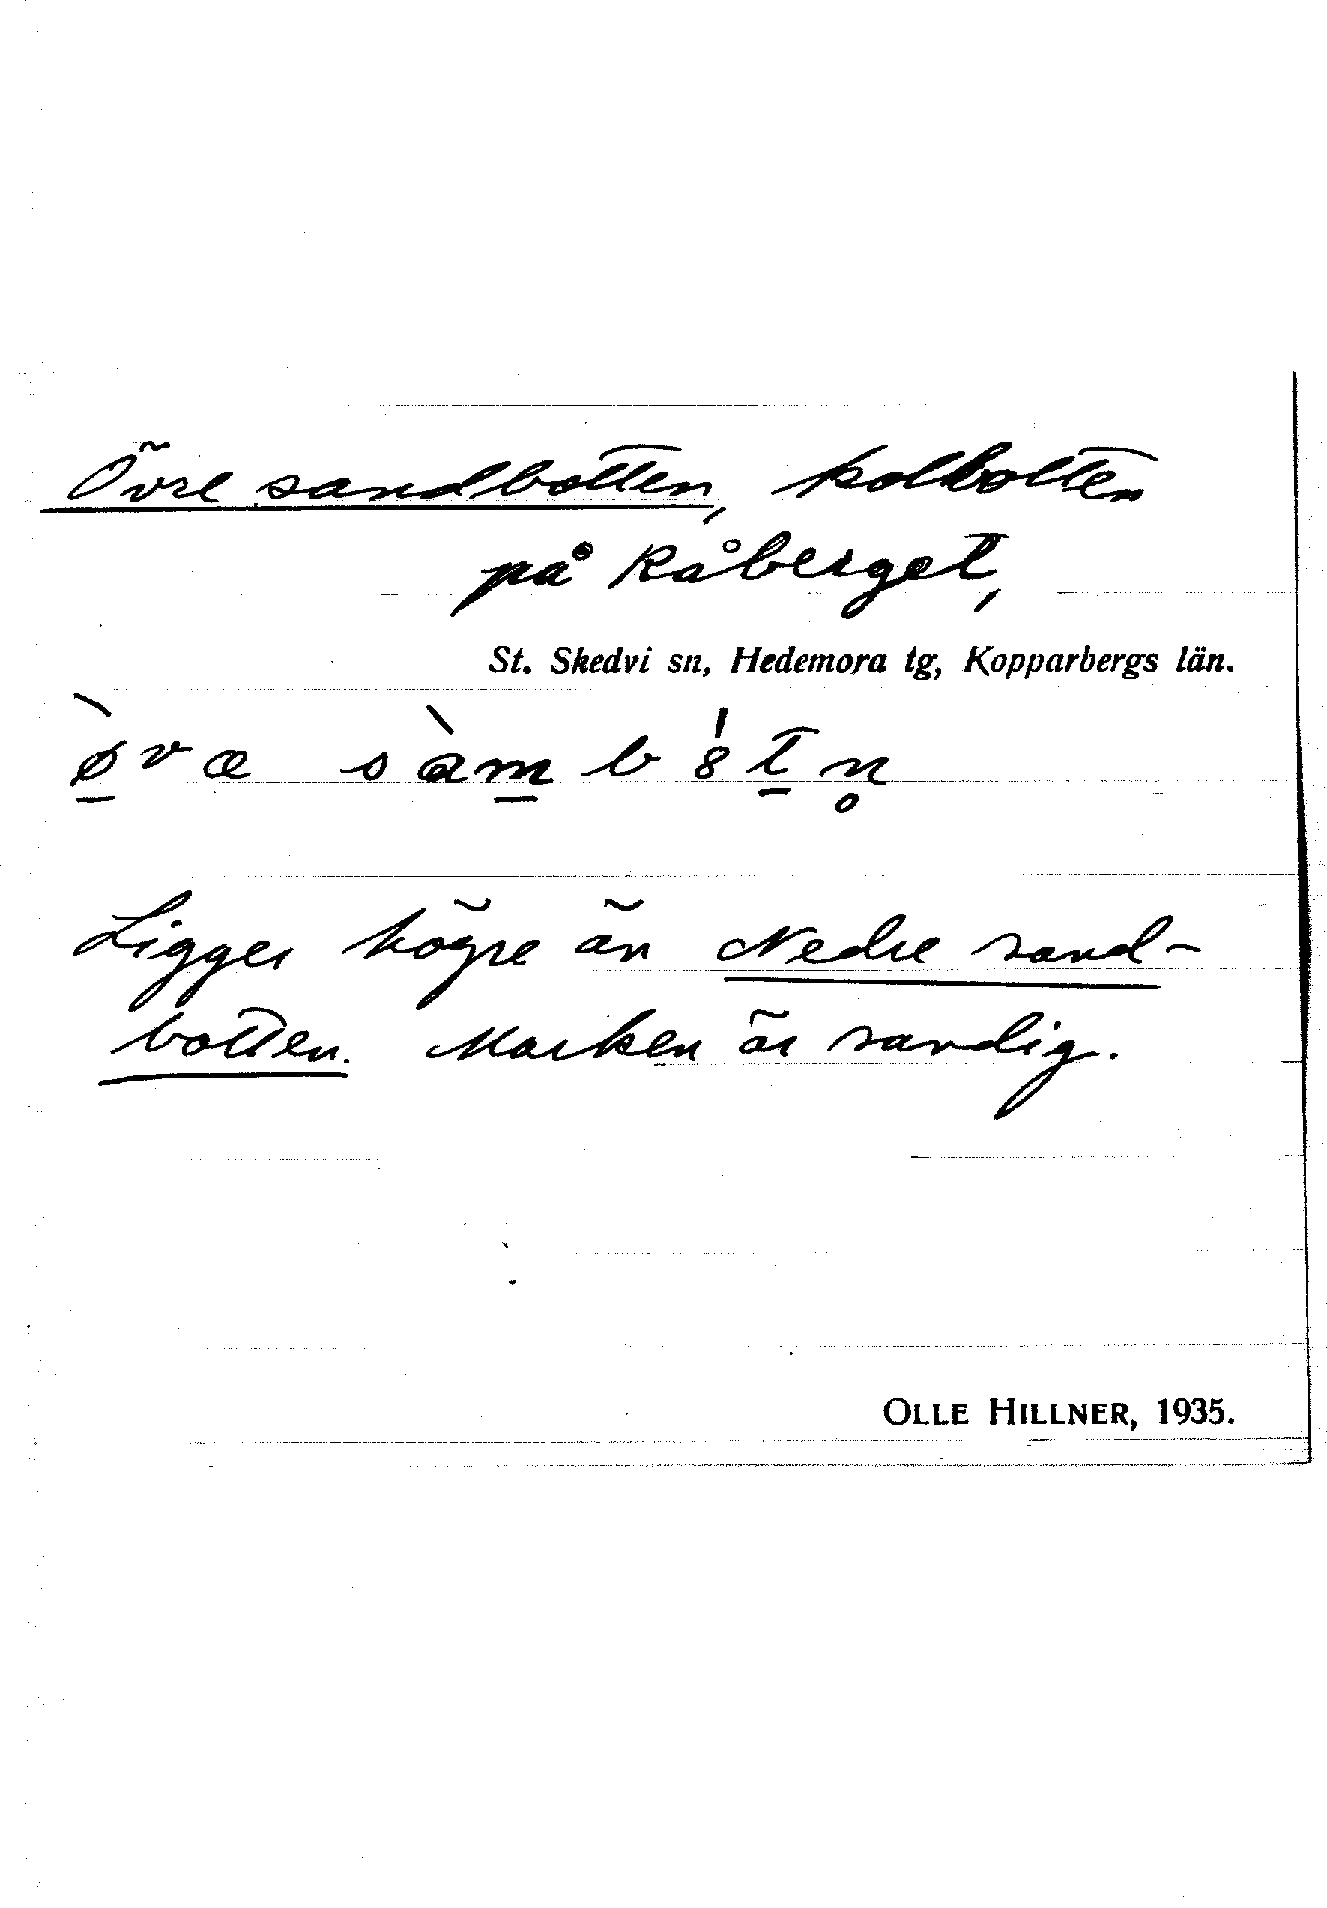 Övre sandbotten, kolbotten
på Råberget,
St. Skedvi sn, Hedemora tg, Kopparbergs län.
ø̀væ sàmb8́tn̥
Ligger högre än Nedre sand-
botten. Marken är sandig.
OLLE HILLNER, 1935.